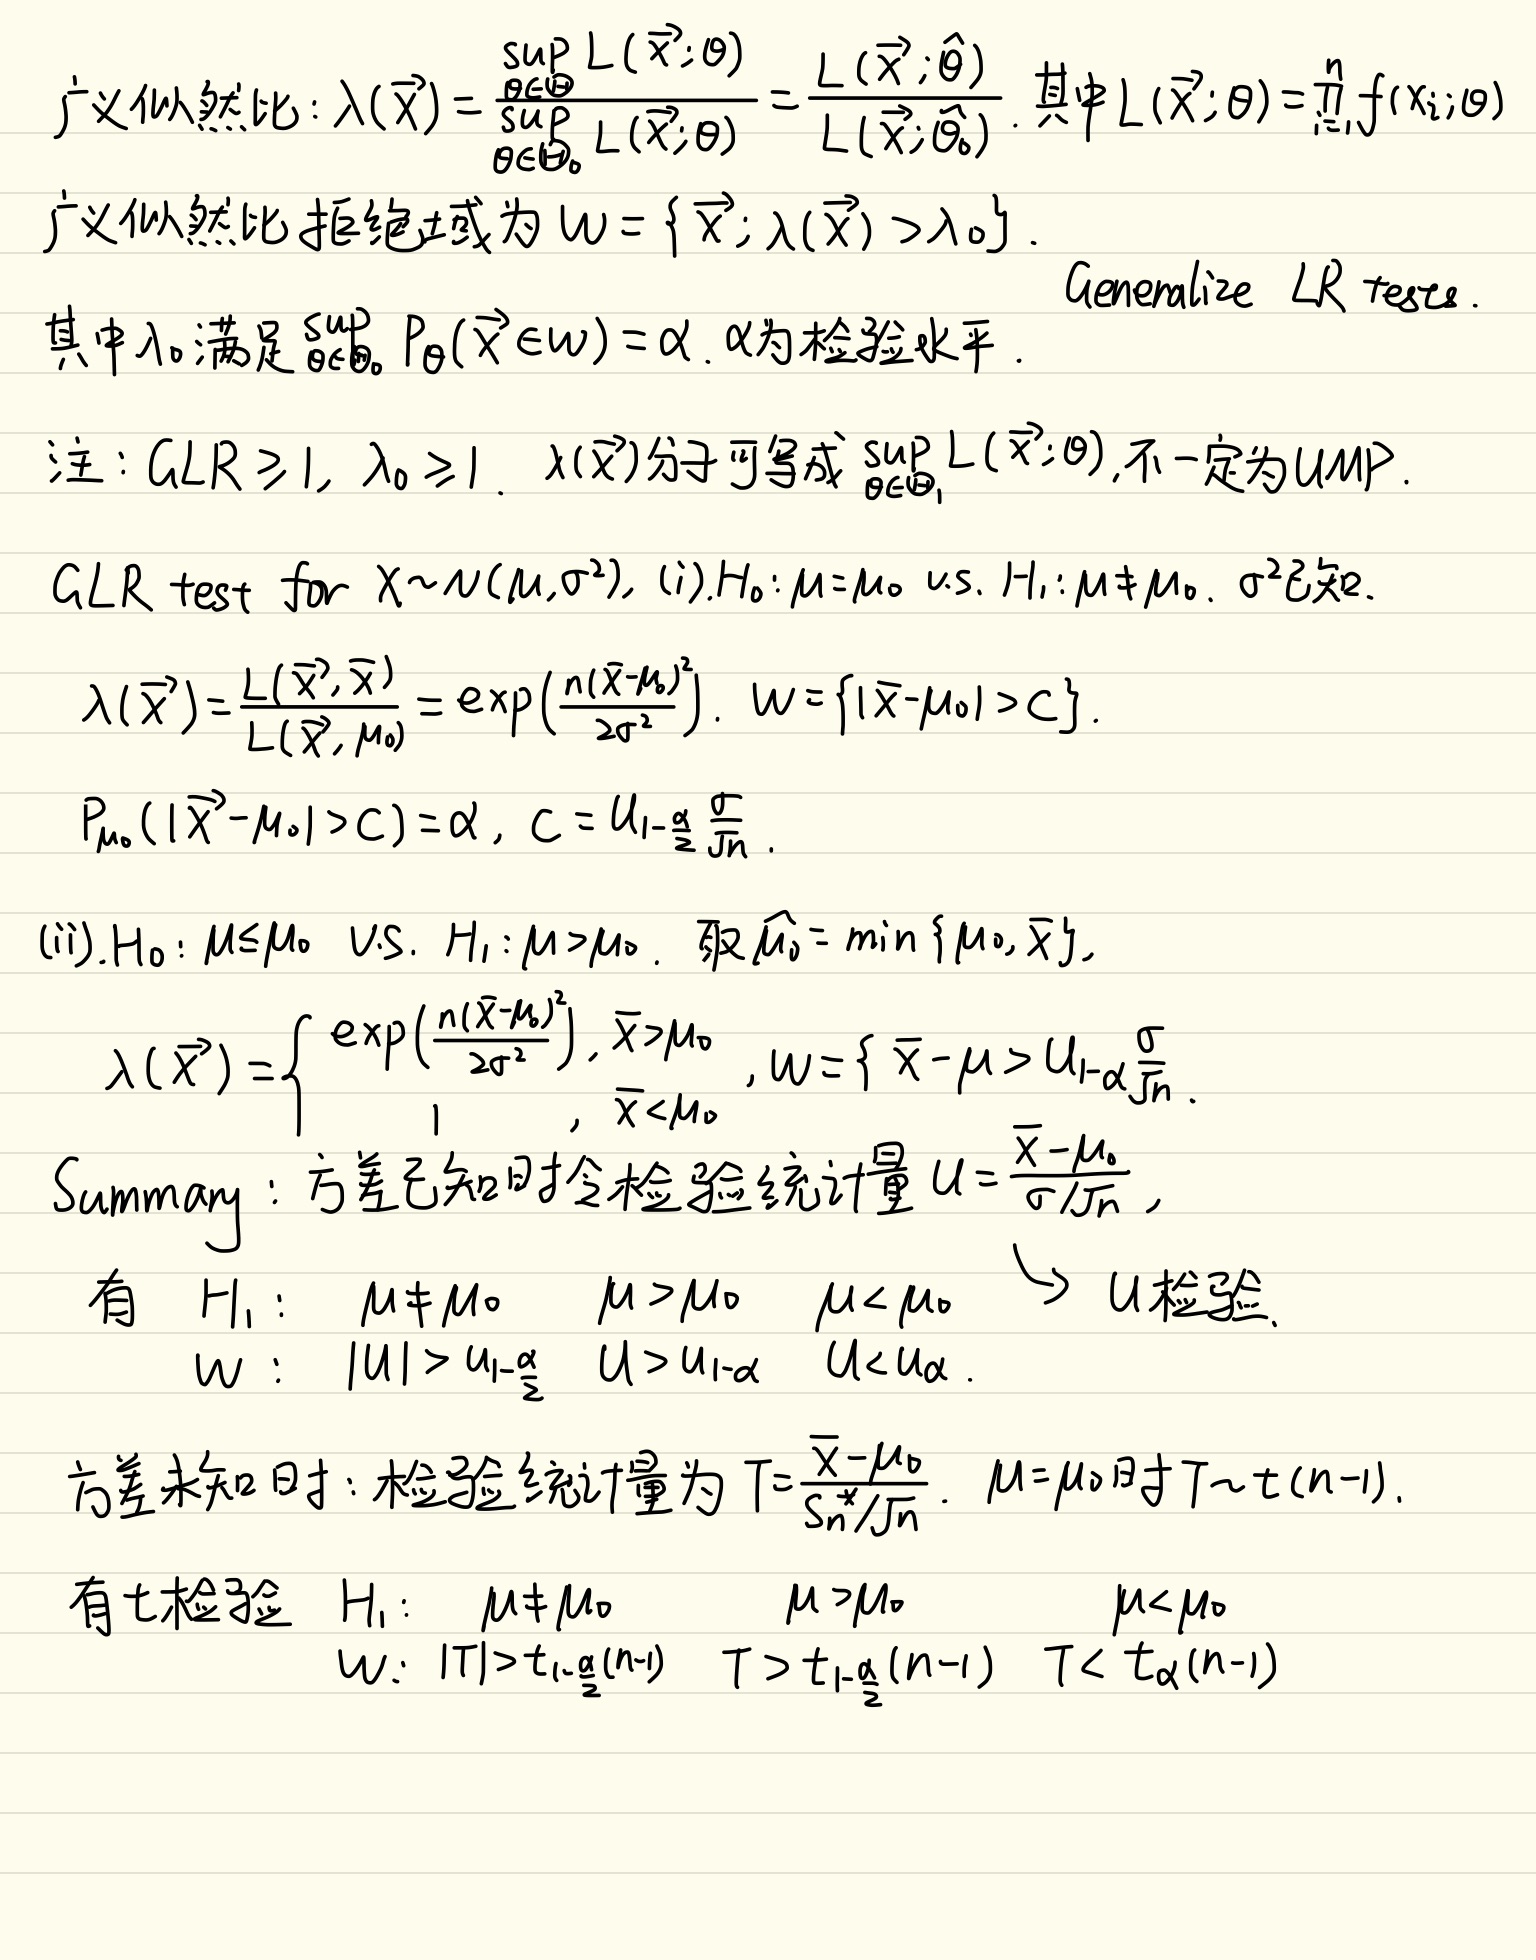 广义似然比：λ(x⃗) = sup_{θ∈Θ} L(x⃗;θ) / sup_{θ∈Θ₀} L(x⃗;θ) = L(x⃗;θ̂) / L(x⃗;θ̂₀). 其中 L(x⃗;θ) = ∏_{i=1}^{n} f(x_i;θ)
广义似然比拒绝域为 W = {x⃗; λ(x⃗) > λ₀}.
Generalize LR tests.
其中 λ₀ 满足 sup_{θ∈Θ₀} P_θ(x⃗ ∈ W) = α. α为检验水平.
注：GLR ≥ 1, λ₀ ≥ 1. λ(x⃗)分子可写成 sup_{θ∈Θ₁} L(x⃗;θ), 不一定为UMP.
GLR test for X~N(μ,σ²), (i).H₀: μ=μ₀ v.s. H₁: μ≠μ₀. σ²已知.
λ(x⃗) = L(x⃗, x̄) / L(x⃗, μ₀) = exp(n(x̄-μ₀)² / 2σ²). W = {|x̄-μ₀| > C}.
P_{μ₀}(|x⃗-μ₀| > C) = α, C = U_{1-α/2} σ/√n.
(ii).H₀: μ≤μ₀ V.S. H₁: μ>μ₀. 取 μ̂₀ = min{μ₀, x̄},
λ(x⃗) = { exp(n(x̄-μ₀)² / 2σ²), x̄>μ₀ ; 1, x̄<μ₀ , W = { x̄-μ > U_{1-α} σ/√n.
Summary：方差已知时令检验统计量 U = (x̄-μ₀) / (σ/√n),
有 H₁: μ≠μ₀ μ>μ₀ μ<μ₀ ↘ U检验.
W: |U| > u_{1-α/2} U > u_{1-α} U < u_α.
方差未知时：检验统计量为 T = (x̄-μ₀) / (S_n*/√n). μ=μ₀时 T~t(n-1).
有t检验 H₁: μ≠μ₀ μ>μ₀ μ<μ₀
W: |T| > t_{1-α/2}(n-1) T > t_{1-α/2}(n-1) T < t_α(n-1)